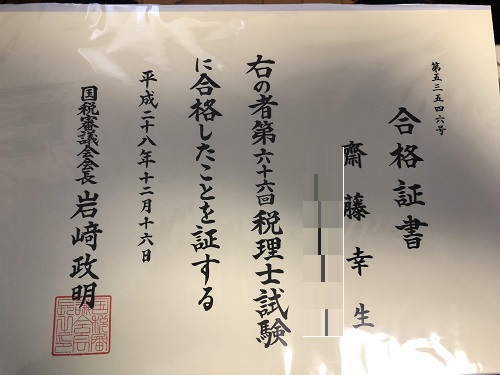 第五三五四六号
合格証書
齋藤幸生
右の者第六十六回税理士試験
に合格したことを証する
平成二十八年十二月十六日
国税審議会会長 岩﨑政明